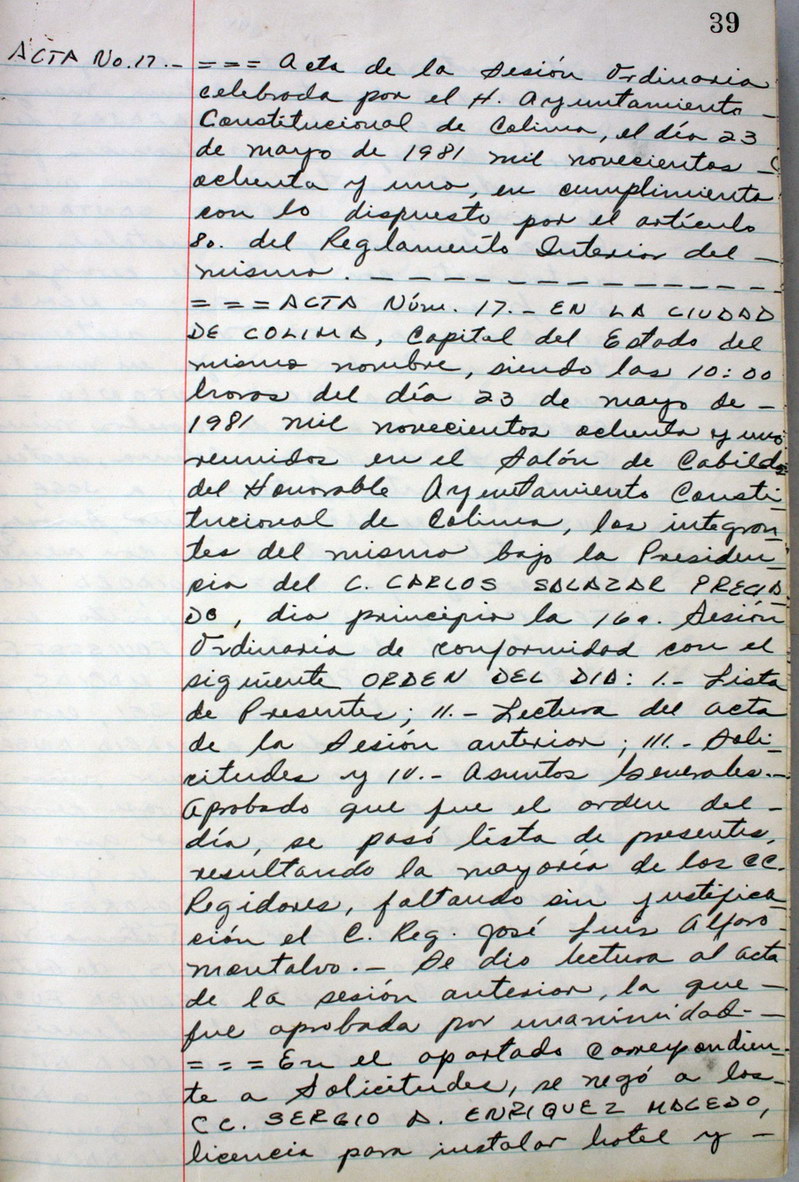 39
ACTA No. 17.- === Acta de la Sesión Ordinaria
celebrada por el H. Ayuntamiento -
Constitucional de Colima, el día 23
de mayo de 1981 mil novecientos -
ochenta y uno, en cumplimiento
con lo dispuesto por el artículo
8o. del Reglamento Interior del -
mismo. - - - - - - - - - - - - -
=== ACTA Núm. 17.- EN LA CIUDAD
DE COLIMA, Capital del Estado del
mismo nombre, siendo las 10:00
horas del día 23 de mayo de -
1981 mil novecientos ochenta y uno
reunidos en el Salón de Cabildo
del Honorable Ayuntamiento Consti-
tucional de Colima, los integran-
tes del mismo bajo la Presiden-
cia del C. CARLOS SALAZAR PRECIA-
DO, dio principio la 16a. Sesión
Ordinaria de conformidad con el
siguiente ORDEN DEL DIA: I.- Lista
de Presentes; II.- Lectura del acta
de la Sesión anterior; III.- Soli-
citudes y IV.- Asuntos Generales.-
Aprobado que fue el orden del -
día, se pasó lista de presentes,
resultando la mayoría de los CC.
Regidores, faltando sin justifica-
ción el C. Reg. José Luis Alfaro
Montalvo.- Se dio lectura al acta
de la sesión anterior, la que -
fue aprobada por unanimidad.- -
=== En el apartado correspondien-
te a Solicitudes, se negó a los
CC. SERGIO A. ENRIQUEZ MACEDO,
licencia para instalar hotel y -